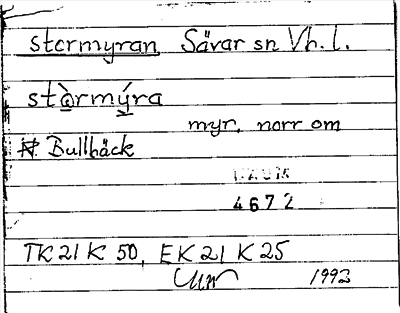 stormyran Sävar sn Vb. l.
stòrmýra
myr, norr om
Bullbäck
DAUM
4672
TK 21 K 50, EK 21 K 25
1993